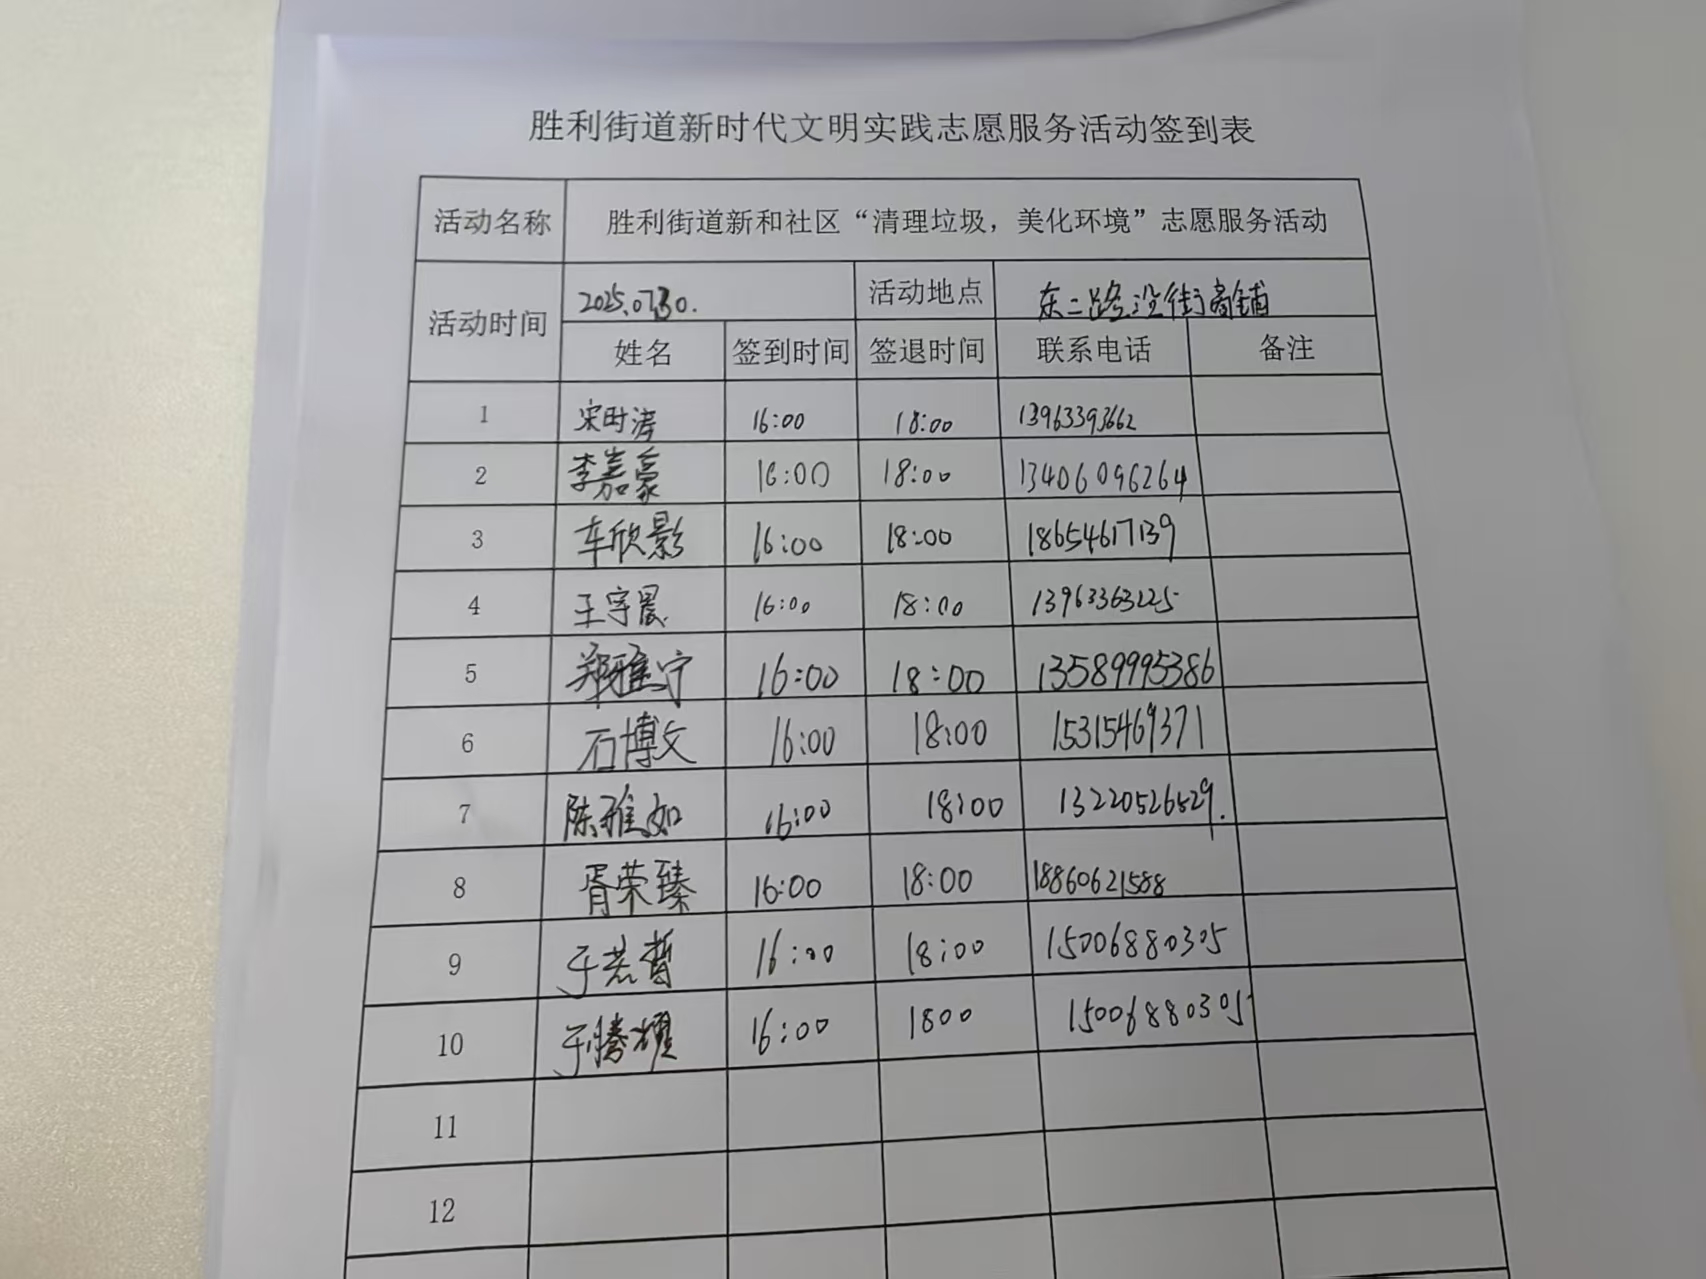 胜利街道新时代文明实践志愿服务活动签到表
活动名称 胜利街道新和社区“清理垃圾，美化环境”志愿服务活动
活动时间 2025.0730. 活动地点 东二路沿街商铺
姓名 签到时间 签退时间 联系电话 备注
1 宋时涛 16:00 18:00 13963393662
2 李嘉豪 16:00 18:00 13406096264
3 车欣影 16:00 18:00 18654617139
4 王宇晨 16:00 18:00 13963363225
5 郑雅宁 16:00 18:00 13589995386
6 石博文 16:00 18:00 15315469371
7 陈雅如 16:00 18:00 13220526529.
8 胥荣臻 16:00 18:00 18860621588
9 于若哲 16:00 18:00 15006880305
10 于腾耀 16:00 1800 15006880305
11
12